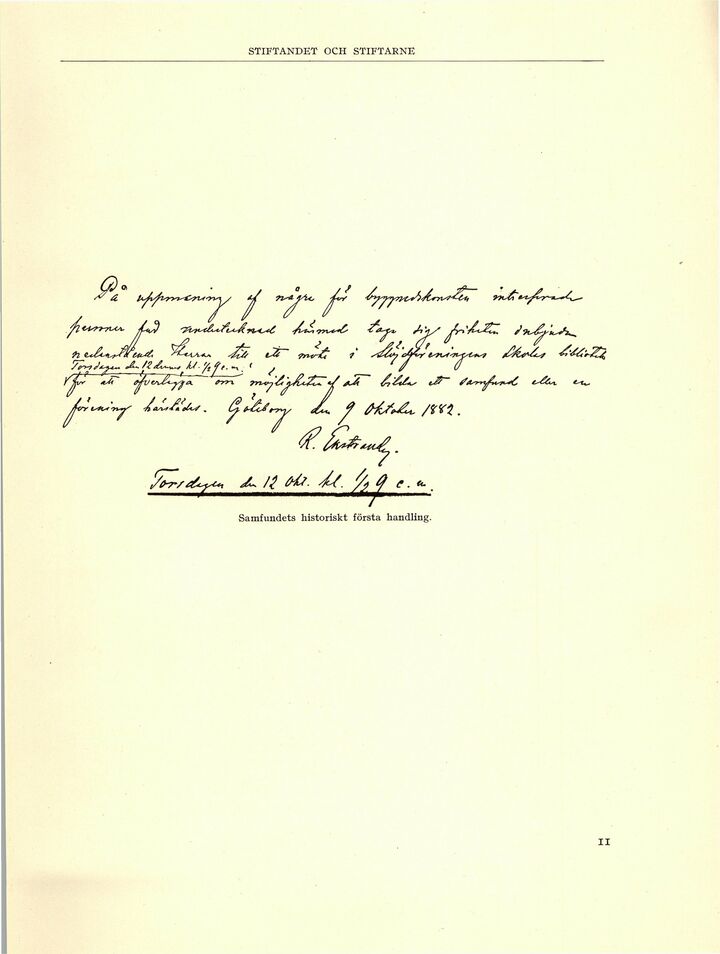 STIFTANDET OCH STIFTARNE
På uppmaning af några för byggnadskonsten intresserade
personer får undertecknad härmed taga sig friheten inbjuda
nedanstående Herrar till ett möte i Slöjdföreningens Skolas bibliotek
Torsdagen den 12 dennes kl. 1/2 9 e.m.
för att öfverlägga om möjligheten af att bilda ett samfund eller en
förening härstädes. Göteborg den 9 Oktober 1882.
R.
Torsdagen den 12 Okt. kl. 1/2 9 e.m.
Samfundets historiskt första handling.
11